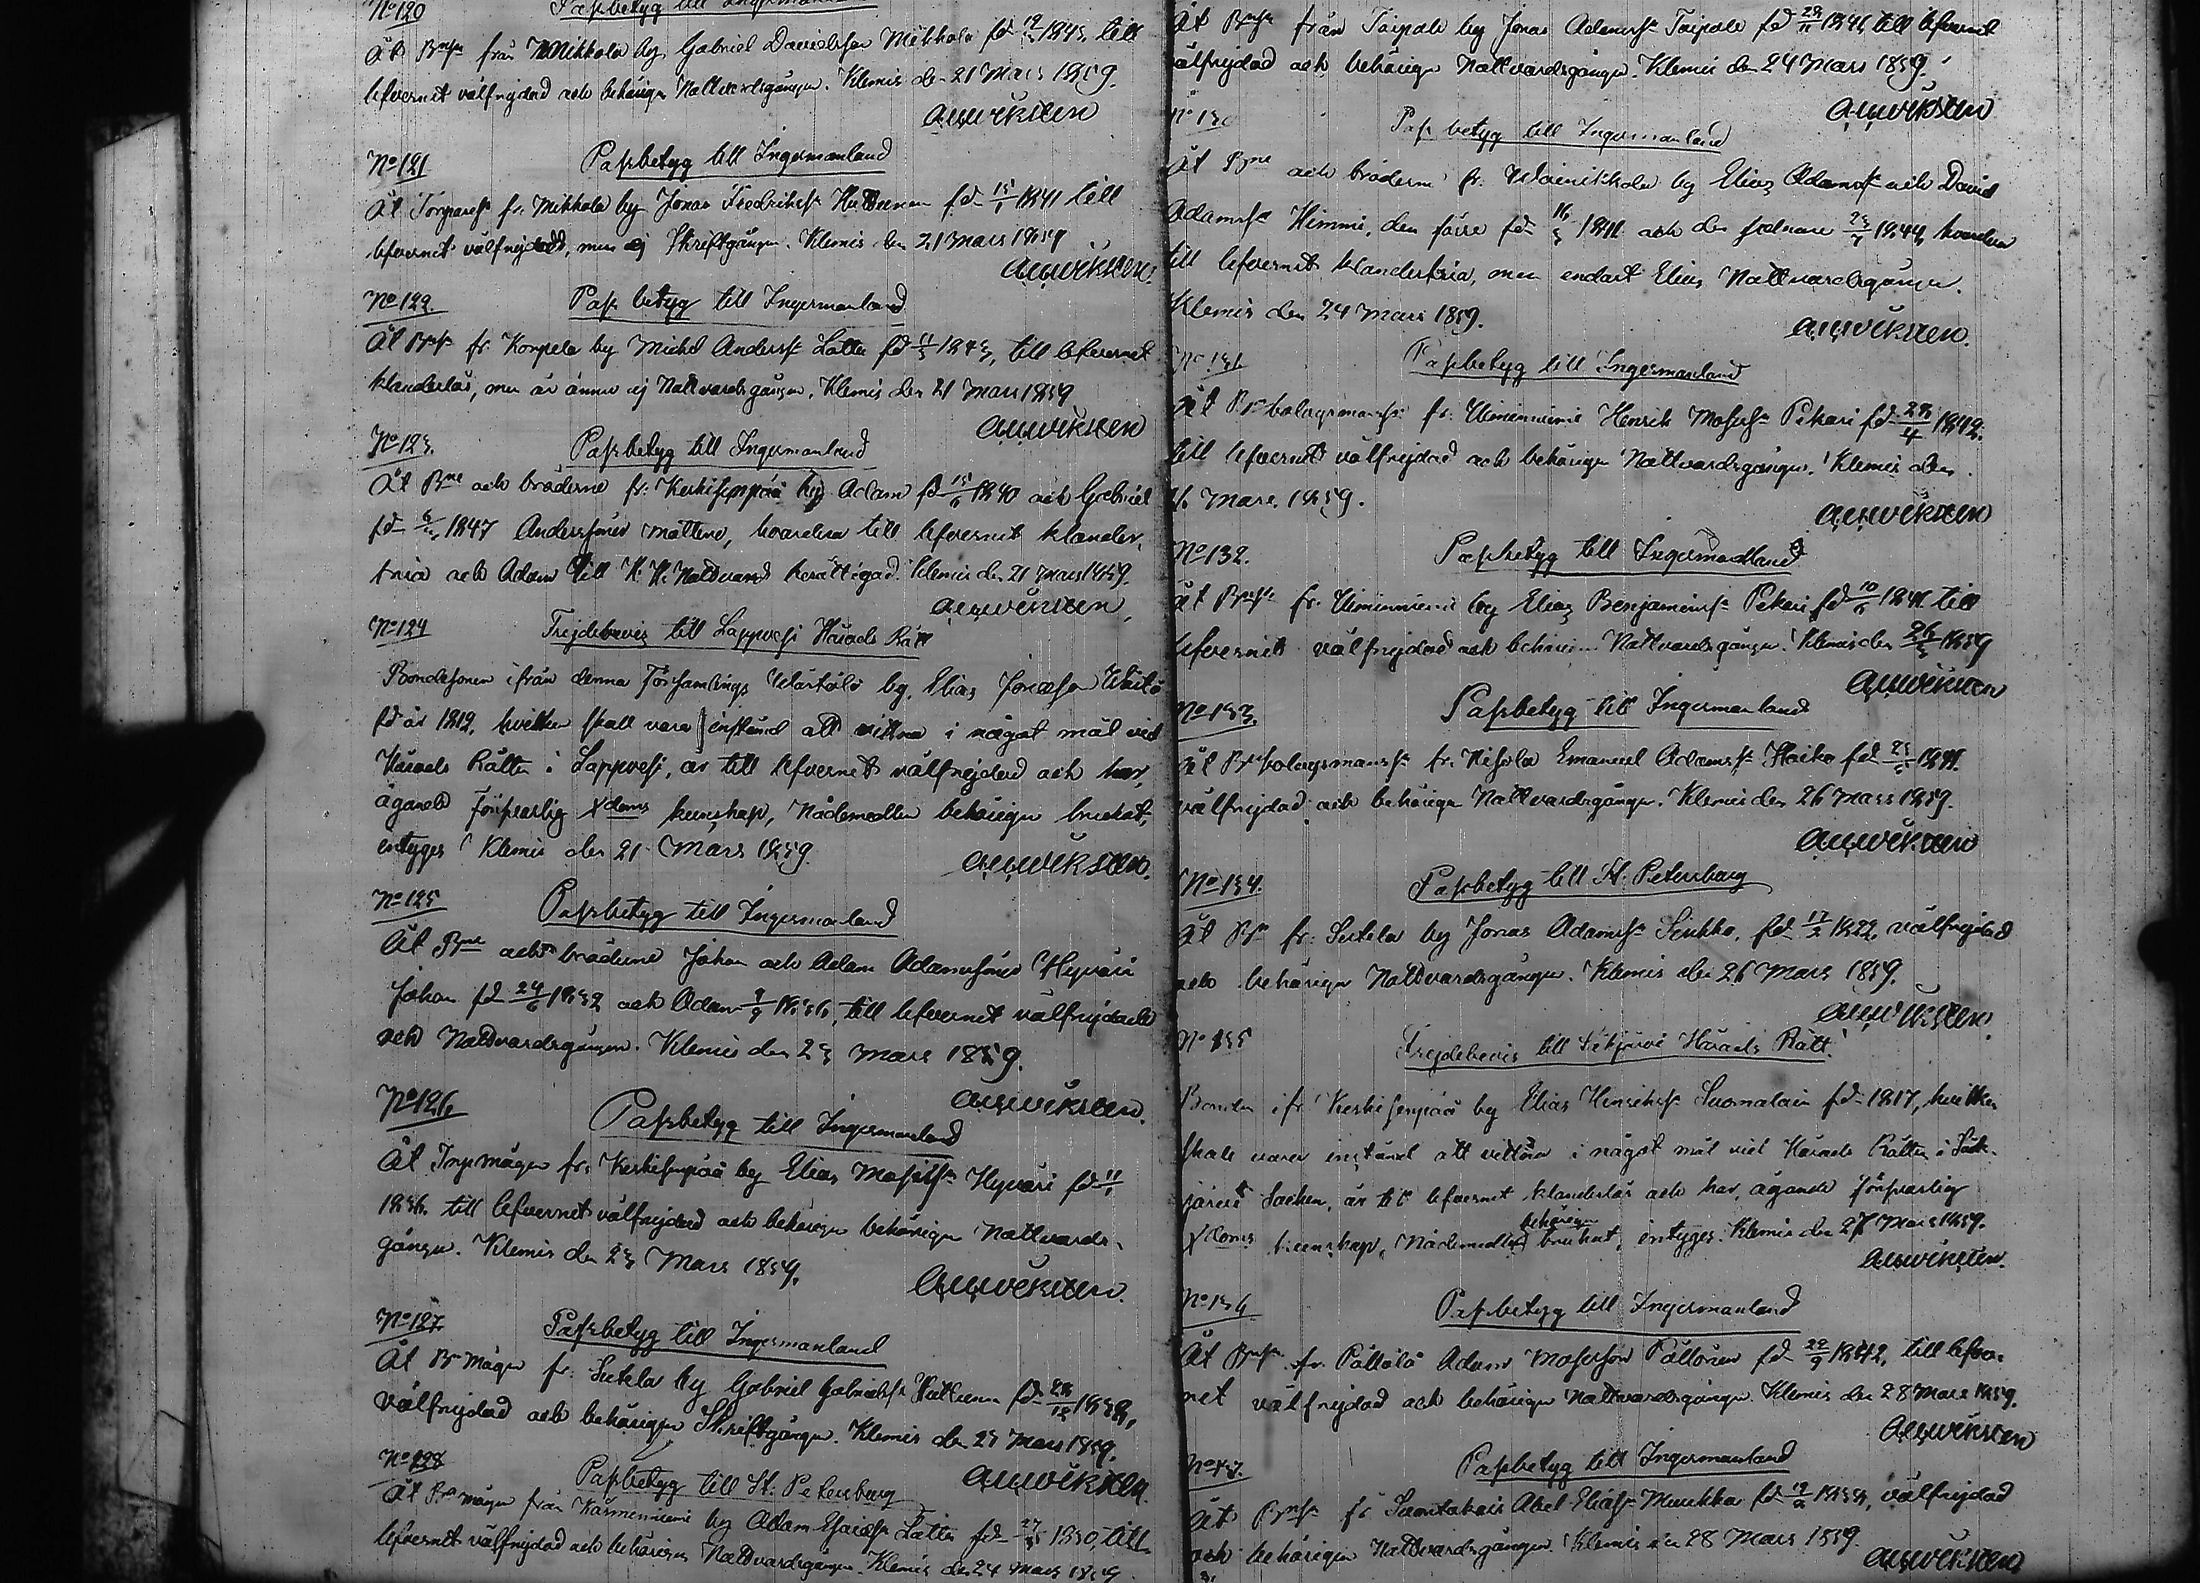 No 120 Passbetyg till Ingermanland
Åt Bnsn från Mikkola by Gabriel Davidsson Mikkola fd 1843, till
lefvernet välfrejdad och behörigen Nattvardsgången. Klemis den 21 Mars 1859.
AWWiksten
No 121 Passbetyg till Ingermanland
Åt Torparesn fr. Mikkola by Jonas Fredrikssn Huttunen fd 15/1 1841 till
lefvernet välfrejdad, men ej Skriftgången. Klemis den 21 Mars 1859
AWWiksten.
No 122. Pass betyg till Ingermanland
Åt Bnsn fr Korpela by Michl Anderssn Lätta fd 1843, till lefvernet
klanderlös, men är ännu ej Nattvardsgången. Klemis den 21 Mars 1859
AWWiksten
No 123. Passbetyg till Ingermanland
Åt Bne och bröderne fr: Keskisenpää by Adam fd 15/6 1840 och Gabriel
fd 1847 Anderssöner Mattina, hvardera till lefvernet klander-
fria och Adam till H. H. Nattvard berättigad. Klemis den 21 Mars 1859.
AWWiksten,
No 124 Frejdebevis till Lappvesi Härads Rätt
Bondesonen ifrån denna Församlings by, Elias Jonasson
fd år 1812, hvilken skall vara instämd att vittna i något mål vid
Härads Rätten i Lappvesi, är till lefvernet välfrejdad och har,
ägande Försvarlig Xdoms kunskap, Nådemedlen behörigen brukat,
intygas Klemis den 21 Mars 1859.
AWWiksten.
No 125 Passbetyg till Ingermanland
Åt Bne och bröderne Johan och Adam Adamssöner Hyväri
Johan fd 24/6 1832 och Adam 9/9 1836, till lefvernet välfrejdade
och Nattvardsgångne. Klemis den 23 Mars 1859.
AWWiksten.
No 126 Passbetyg till Ingermanland
Åt Inh mågen fr: Keskisenpää by Elias Mosissn Hyväri fd
1836. till lefvernet välfrejdad och behörigen behörigen Nattvards-
gången. Klemis den 23 Mars 1859.
AWWiksten.
No 127 Passbetyg till Ingermanland
Åt B mågen fr: Sutela by Gabriel Gabrielssn Huttunen fd 28/12 1838,
välfrejdad och behörigen Skriftgången. Klemis den 23 Mars 1859.
AWWiksten.
No 128 Passbetyg till St. Petersburg
Åt B mågen från Kärmeniemi by Adam Esaiassn Lätta fd 27/3 1830, till
lefvernet välfrejdad och behörigen Nattvardsgången. Klemis den 24 Mars 1859
Åt Bnsn från Taipale by Jonas Adamssn Taipale fd 1841, till lefvernet
välfrejdad och behörigen Nattvardsgången. Klemis den 24 Mars 1859.
AWWiksten
No 130 Pass betyg till Ingermanland
Åt Bne och bröderne fr. Wainikkala by Elias Adamssn och David
Adamssn Himmi, den förre fd 16/3 1841 och den sednare 23/7 1844, hvardera
till lefvernet klanderfria, men endast Elias Nattvardsgången.
Klemis den 24 Mars 1859.
AWWiksten.
No 131 Passbetyg till Ingermanland
Åt Bn bolagsmanssn fr. Uiminniemi Henrik Mosissn Pekari fd 28/4 1842.
till lefvernet välfrejdad och behörigen Nattvardsgången. Klemis den
26 Mars 1859.
AWWiksten
No 132. Passbetyg till Ingermanland
Åt Bnsn fr. Uiminniemi by Elias Benjaminssn Pekari fd 10/6 1841 till
lefvernet välfrejdad och behörigen Nattvardsgången. Klemis den 26/3 1859
AWWiksten
No 133. Passbetyg till Ingermanland
Åt Bn bolagsmanssn fr. Kisola Emanuel Adamssn Haiko fd 1841.
välfrejdad och behörigen Nattvardsgången. Klemis den 26 Mars 1859.
AWWiksten
No 134. Passbetyg till St. Petersburg
Åt Bn fr. Sutela by Jonas Adamssn Sinkko, fd 17/2 1822, välfrejdad
och behörigen Nattvardsgången. Klemis den 26 Mars 1859.
AWWiksten.
No 135 Frejdebevis till Säkjärvi Härads Rätt.
Bonden ifr Keskisenpää by Elias Henrikssn Suomalain fd 1817, hvilken
skall vara instämd att vittna i något mål vid Härads Rätten i Säk-
järvi Socken, är till lefvernet klanderlös och har, ägande försvarlig
Xdoms kunskap, Nådemedlen behörigen brukat, intygas. Klemis den 27 Mars 1859.
AWWiksten.
No 136 Passbetyg till Ingermanland
Åt Bnsn fr. Pällilä Adam Mosisson Pällönen fd 22/9 1842, till lefver-
net välfrejdad och behörigen Nattvardsgången. Klemis den 28 Mars 1859.
AWWiksten
No 137. Passbetyg till Ingermanland
Åt Bnsn fr Suontakais Abel Eliassn Muukka fd 1838, välfrejdad
och behörigen Nattvardsgången. Klemis den 28 Mars 1859.
AWWiksten